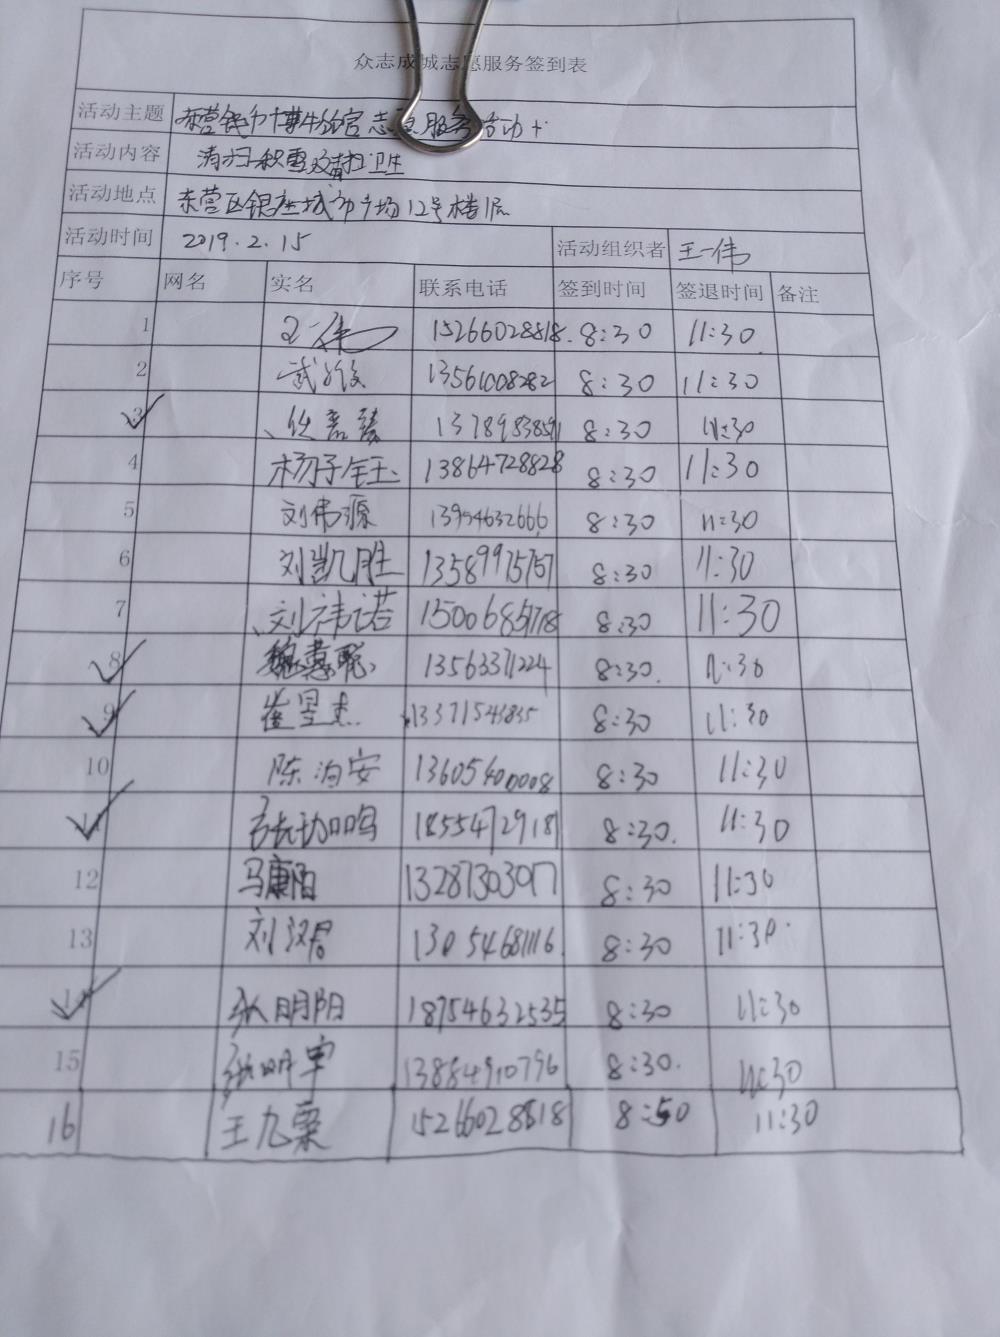 众志成城志愿服务签到表
活动主题 东营钱币博物馆志愿服务活动
活动内容 清扫积雪及清扫卫生
活动地点 东营区银座城市广场12号楼1层
活动时间 2019.2.15 活动组织者 王一伟
序号 网名 实名 联系电话 签到时间 签退时间 备注
1 王一伟 15266028818 8:30 11:30
2 武 13561008282 8:30 11:30
3 13789838591 8:30 11:30
4 杨子钰 13864728828 8:30 11:30
5 刘伟源 13954632666 8:30 11:30
6 刘凯胜 13589975757 8:30 11:30
7 刘祎诺 15006851718 8:30 11:30
8 魏 13563371224 8:30 11:30
9 崔昱杰 13371543835 8:30 11:30
10 陈泊安 13605400008 8:30 11:30
11 张 18554729181 8:30 11:30
12 马康 13287303017 8:30 11:30
13 刘汉君 13054681116 8:30 11:30
14 张明阳 18754632535 8:30 11:30
15 张明宇 13884910796 8:30 11:30
16 王九粟 15266028818 8:50 11:30